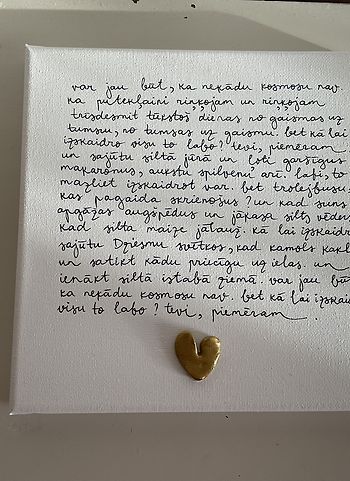 var jau būt, ka nekādu kosmosu nav.
ka putekļaini riņķojam un riņķojam
trīsdesmit tūkstoš dienas no gaismas uz
tumsu, no tumsas uz gaismu. bet kā lai
izskaidro visu to labo? tevi, piemēram
un sajūtu siltā jūrā un ļoti garšīgus
makaronus, aukstu spilvenu arī. labi, to
mazliet izskaidrot var. bet trolejbusu,
kas pagaida skrienošus? un kad suns
apgāžas augšpēdus un jākasa silts vēders
kad silta maize jālauž. kā lai izskaidro
sajūtu Dziesmu svētkos, kad kamols kakl
un satikt kādu priecīgu uz ielas. un
ienākt siltā istabā ziemā. var jau bū
ka nekādu kosmosu nav. bet kā lai izskai
visu to labo? tevi, piemēram.